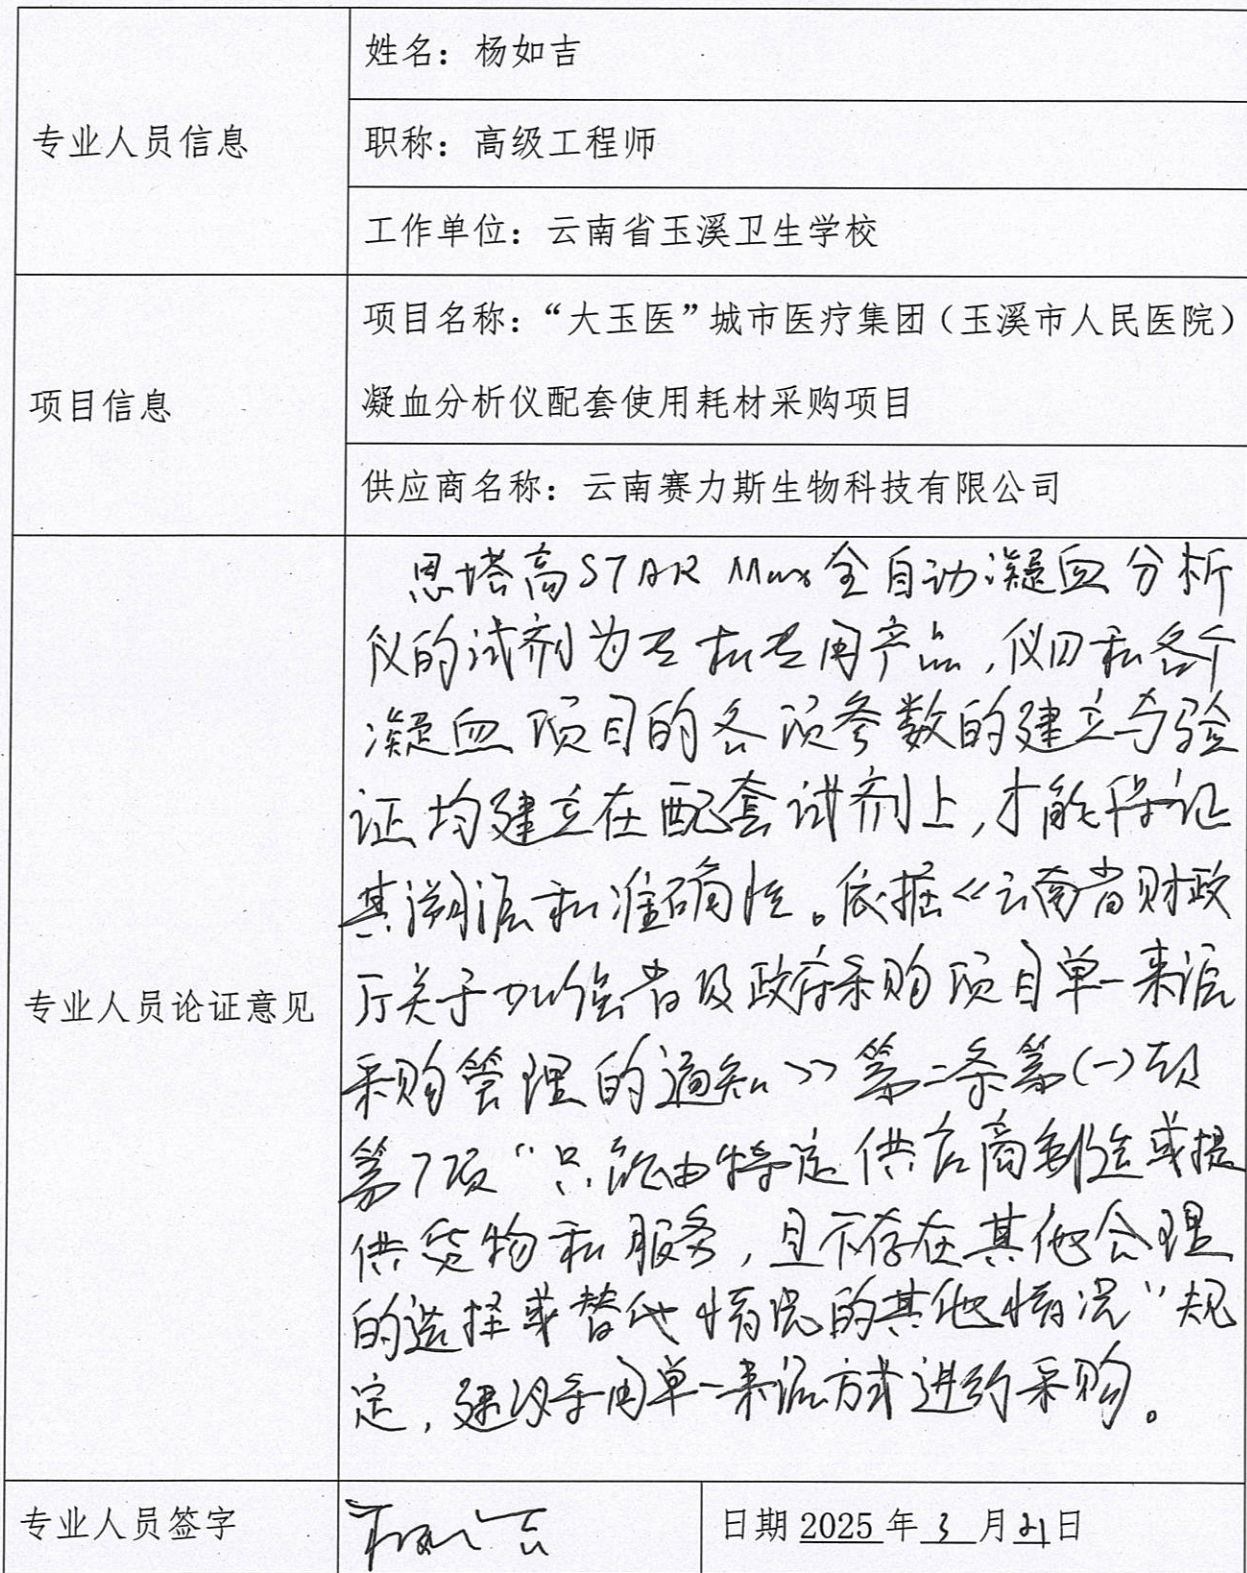 专业人员信息
姓名：杨如吉
职称：高级工程师
工作单位：云南省玉溪卫生学校
项目信息
项目名称：“大玉医”城市医疗集团（玉溪市人民医院）
凝血分析仪配套使用耗材采购项目
供应商名称：云南赛力斯生物科技有限公司
专业人员论证意见
思塔高STAR Max全自动凝血分析
仪的试剂为专机专用产品，仪四和各个
凝血项目的各项参数的建立与验
证均建立在配套试剂上，才能保证
其溯源和准确性。依据《云南省财政
厅关于加强省级政府采购项目单一来源
采购管理的通知》第二条第(一)项
第7项“只能由特定供应商制造或提
供货物和服务，且不存在其他合理
的选择或替代情况的其他情况”规
定，建议采用单一来源方式进行采购。
专业人员签字
杨如吉
日期 2025 年 3 月 21 日